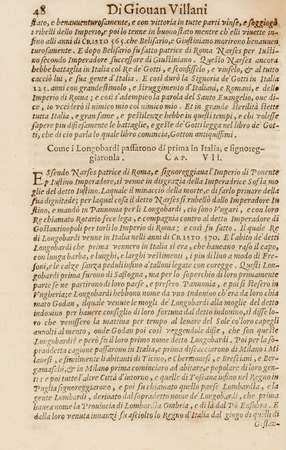 48 Di Giouan Villani
stato, e benauenturosamente, e con vittoria in tutte parti vinse, e soggiogò
i ribelli dello Imperio, e poi lo tenne in buono stato mentre ch'elli viuette insino
alli anni di CRISTO 565. che Belisario, e Giustiniano morirono benauenturosamente.
E dopo Belisario fu fatto patrice di Roma Narses per Iustino
secondo Imperadore successore di Giustiniano. Questo Narses ancora
hebbe battaglia in Italia col Re de Gotti, e sconfisselo, e vinselo, e al tutto
uccise lui, e sua gente d'Italia. E così durò la Signoria de Gotti in Italia
125. anni con grande stimolo, e struggimento d'Italiani, e Romani, e dello
Imperio di Roma; e così s'adempieo la parola del Santo Euangelio, oue dice,
io vcciderò il nimico mio col nimico mio. Et in grande sterilità stette
tutta Italia, e gran fame, e pestilenze hebbe in questi tempi, e chi volesse
sapere più distesamente le battaglie, e geste de' Gotti legga nel libro de' Gotti,
che di ciò parla lo quale libro comincia, Gottorum antiquissimi.
Come i Longobardi passarono di prima in Italia, e signoreggiaronla.
CAP. VII.
ESsendo Narses patrice di Roma, e signoreggiaua l'Imperio di Ponente
per Iustino Imperadore, sì venne in disgrazia della Imperatrice Sofia moglie
del detto Iustino. Laquale il minacciò della morte, e di farlo priuare della
sua dignitade; per laqual cosa il detto Narses si rubellò dallo Imperadore Iustino,
e mandò in Pannonia per li Longobardi, ciò sono Vngari, e con loro
Re chiamato Rotario fece lega, e compagnia contro al detto Imperadore di
Gostantinopoli per torli lo Imperio di Roma; e così fu fatto. Il quale Re
di Longobardi venne in Italia nelli anni di CRISTO 570. E l'abito de detti
Longobardi che prima vennero in Italia si era, che haueano raso il capo,
con lunga barba, e lunghi, e larghi vestimenti, i più di lino a modo di Fresoni,
e le calze sanza peduli insino al tallone legate con coregge. Questi Longobardi
prima furono di Sassogna, ma per lo soperchio di loro primamente
parte se ne partirono di loro paese, e presero Pannonia, e poi stesero in
Vngheria; e Longobardi hebbono nome da vno Indouino che era da loro chiamato
Godan, ilquale venute le mogli de Longobardi alla moglie del detto
indouino per hauere consiglio di loro fortuna dal detto indouino, sì disse loro
che venissero la mattina per tempo al leuare del Sole co'loro capegli
auuolti al mento, onde Godan poi così veggendole disse, che son quelle
Longobardi? e però fu il loro primo nome detto Longobardi. Poi per la sopradetta
cagione passarono in Italia, e prima discacciarono di Milano i Milanesi,
e similmente li abitanti di Ticino, e Chermonesi, e Bresciani, e Bergamaschi,
& in Milano prima cominciaro ad abitare, e popolare di loro gente:
e poi tutte l'altre Città d'intorno, e quelle di Toscana insino nel Regno in
Puglia signoreggiarono, e poi fu chiamato quello paese Lombardia, e la
gente Lombardi, deriuato dal sopradetto nome de Longobardi, che prima
hauea nome la Prouincia di Lombardia Ombria, e di là dal Pò Eusubra. E
dalla loro venuta innanzi fu sciolto lo Regno d'Italia dal giogo di quelli di
Gostan-